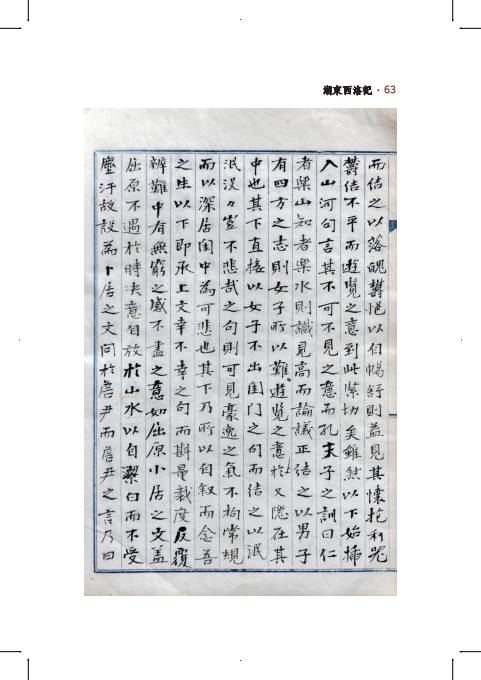 湖東西洛記 · 63
而結之以落魄鬱悒以自暢舒則益見其懷抱利
鬱結不平而遊覽之意到此緊切矣雖然以下始插
入山河句言其不可不見之意而孔夫子之訓曰仁
者樂山知者樂水則識見高而論議正結之以男子
有四方之志則女子所以難遊覽之意於又隱在其
中也其下直接以女子不出閨门之句而結之以泯
泯没々豈不悲哉之句則可見豪逸之氣不拘常規
而以深居閨中為可悲也其下乃所以自叙而念吾
之生以下即承上文幸不幸之句而斟量裁度反覆
辨難中有無窮之感不盡之意如屈原小居之文盖
屈原不遇於時决意自放於山水以自潔曰而不受
塵汙故設為卜居之文問於詹尹而詹尹之言乃曰